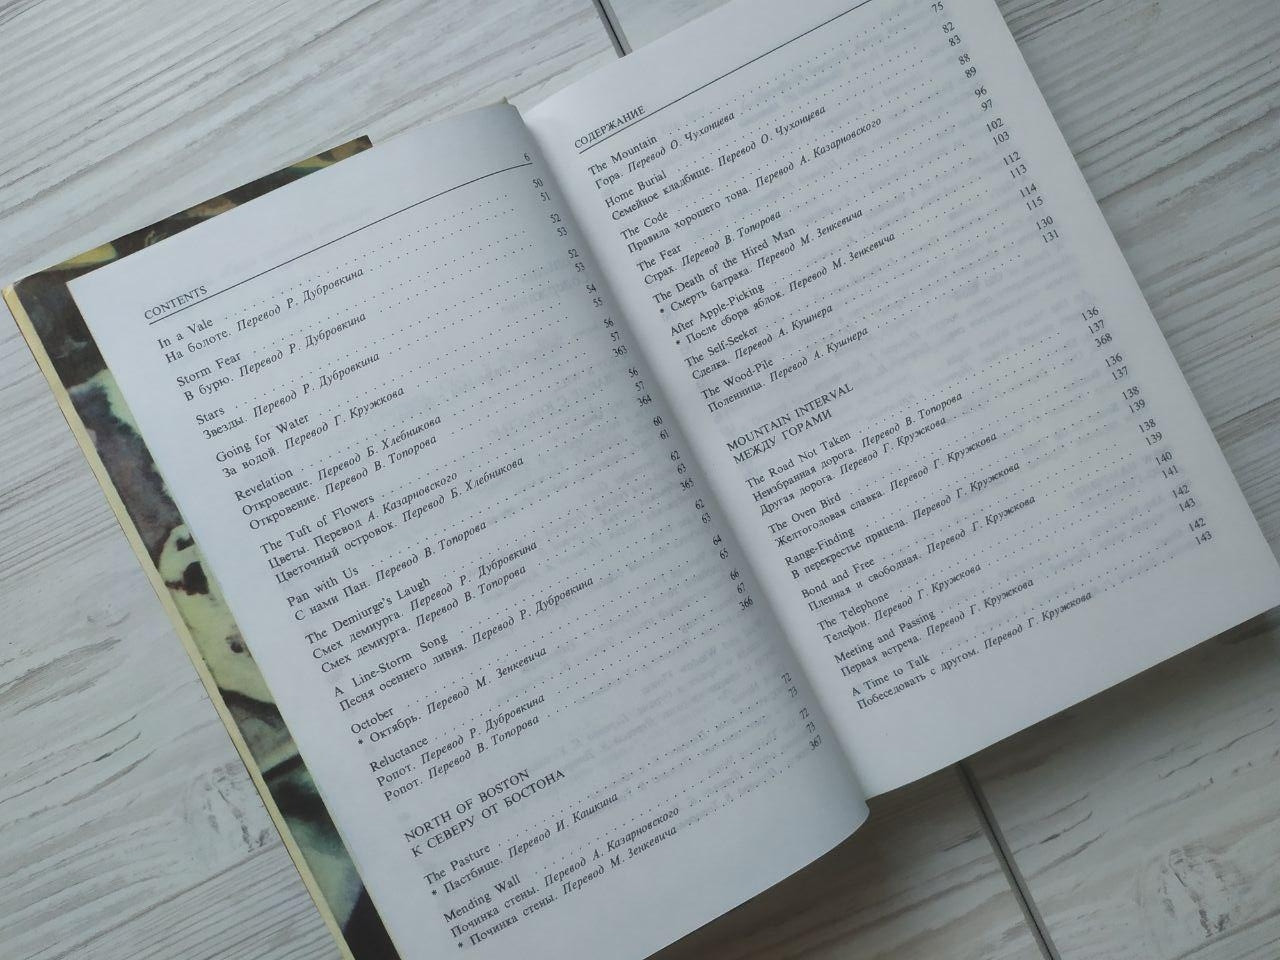 CONTENTS 6
In a Vale . . . . . . . . . . 50
На болоте. Перевод Р. Дубровкина . . . . . . . . . . 51
Storm Fear . . . . . . . . . . 52
В бурю. Перевод Р. Дубровкина . . . . . . . . . . 53
Stars . . . . . . . . . . 52
Звезды. Перевод Р. Дубровкина . . . . . . . . . . 53
Going for Water . . . . . . . . . . 54
За водой. Перевод Г. Кружкова . . . . . . . . . . 55
Revelation . . . . . . . . . . 56
Откровение. Перевод Б. Хлебникова . . . . . . . . . . 57
Откровение. Перевод В. Топорова . . . . . . . . . . 363
The Tuft of Flowers . . . . . . . . . . 56
Цветы. Перевод А. Казарновского . . . . . . . . . . 57
Цветочный островок. Перевод Б. Хлебникова . . . . . . . . . . 364
Pan with Us . . . . . . . . . . 60
С нами Пан. Перевод В. Топорова . . . . . . . . . . 61
The Demiurge's Laugh . . . . . . . . . . 62
Смех демиурга. Перевод Р. Дубровкина . . . . . . . . . . 63
Смех демиурга. Перевод В. Топорова . . . . . . . . . . 365
A Line-Storm Song . . . . . . . . . . 62
Песня осеннего ливня. Перевод Р. Дубровкина . . . . . . . . . . 63
October . . . . . . . . . . 64
* Октябрь. Перевод М. Зенкевича . . . . . . . . . . 65
Reluctance . . . . . . . . . . 66
Ропот. Перевод Р. Дубровкина . . . . . . . . . . 67
Ропот. Перевод В. Топорова . . . . . . . . . . 366
NORTH OF BOSTON
К СЕВЕРУ ОТ БОСТОНА
The Pasture . . . . . . . . . . 72
* Пастбище. Перевод И. Кашкина . . . . . . . . . . 73
Mending Wall . . . . . . . . . . 72
Починка стены. Перевод А. Казарновского . . . . . . . . . . 73
* Починка стены. Перевод М. Зенкевича . . . . . . . . . . 367
СОДЕРЖАНИЕ
The Mountain . . . . . . . . . .
Гора. Перевод О. Чухонцева . . . . . . . . . . 75
Home Burial . . . . . . . . . . 82
Семейное кладбище. Перевод О. Чухонцева . . . . . . . . . . 83
The Code . . . . . . . . . . 88
Правила хорошего тона. Перевод А. Казарновского . . . . . . . . . . 89
The Fear . . . . . . . . . . 96
Страх. Перевод В. Топорова . . . . . . . . . . 97
The Death of the Hired Man . . . . . . . . . . 102
* Смерть батрака. Перевод М. Зенкевича . . . . . . . . . . 103
After Apple-Picking . . . . . . . . . . 112
* После сбора яблок. Перевод М. Зенкевича . . . . . . . . . . 113
The Self-Seeker . . . . . . . . . . 114
Сделка. Перевод А. Кушнера . . . . . . . . . . 115
The Wood-Pile . . . . . . . . . . 130
Поленница. Перевод А. Кушнера . . . . . . . . . . 131
MOUNTAIN INTERVAL
МЕЖДУ ГОРАМИ
The Road Not Taken . . . . . . . . . . 136
Неизбранная дорога. Перевод В. Топорова . . . . . . . . . . 137
Другая дорога. Перевод Г. Кружкова . . . . . . . . . . 368
The Oven Bird . . . . . . . . . . 136
Желтоголовая славка. Перевод Г. Кружкова . . . . . . . . . . 137
Range-Finding . . . . . . . . . . 138
В перекрестье прицела. Перевод Г. Кружкова . . . . . . . . . . 139
Bond and Free . . . . . . . . . . 138
Пленная и свободная. Перевод Г. Кружкова . . . . . . . . . . 139
The Telephone . . . . . . . . . . 140
Телефон. Перевод Г. Кружкова . . . . . . . . . . 141
Meeting and Passing . . . . . . . . . . 142
Первая встреча. Перевод Г. Кружкова . . . . . . . . . . 143
A Time to Talk . . . . . . . . . . 142
Побеседовать с другом. Перевод Г. Кружкова . . . . . . . . . . 143